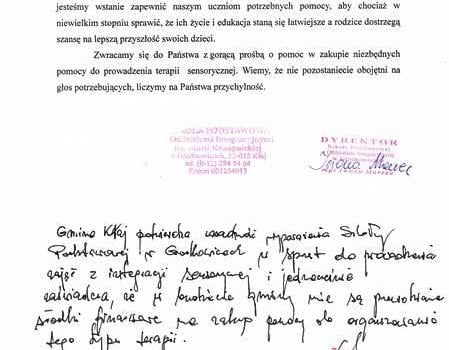 jesteśmy wstanie zapewnić naszym uczniom potrzebnych pomocy, aby chociaż w
niewielkim stopniu sprawić, że ich życie i edukacja staną się łatwiejsze a rodzice dostrzegą
szansę na lepszą przyszłość swoich dzieci.
Zwracamy się do Państwa z gorącą prośbą o pomoc w zakupie niezbędnych
pomocy do prowadzenia terapii sensorycznej. Wiemy, że nie pozostaniecie obojętni na
głos potrzebujących, liczymy na Państwa przychylność.
SZKOŁA PODSTAWOWA
z Oddziałami Integracyjnymi
im. Marii Kruszyńskiej
w Grodkowicach, 32-015 Kłaj
tel. (0-12) 284 54 64
Regon
DYREKTOR
Szkoły Podstawowej
Gmina Kłaj potwierdza zasadność wyposażenia Szkoły
Podstawowej w Grodkowicach w sprzęt do prowadzenia
zajęć z integracji sensorycznej i jednocześnie
zaświadcza, że w budżecie gminy nie są
środki finansowe na zakup pomocy do organizowania
tego typu terapii.